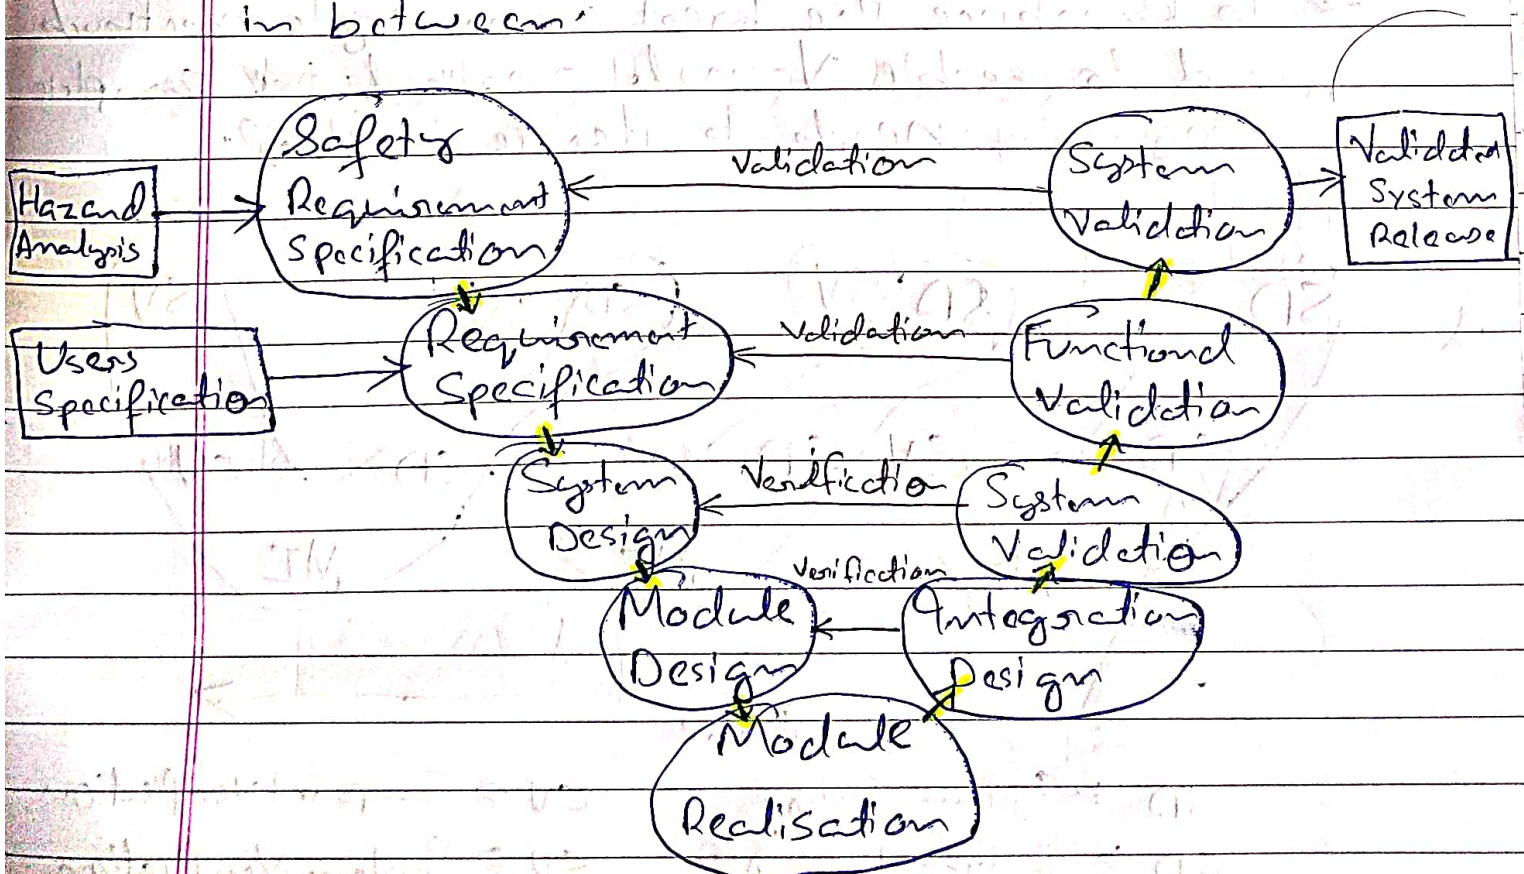 in between.
Safety
Requirement
Specification
Validation
System
Validation
Validated
System
Release
Hazard
Analysis
Users
Specification
Requirement
Specification
Validation
Functional
Validation
System
Design
Verification
System
Validation
Module
Design
Verification
Integration
Design
Module
Realisation